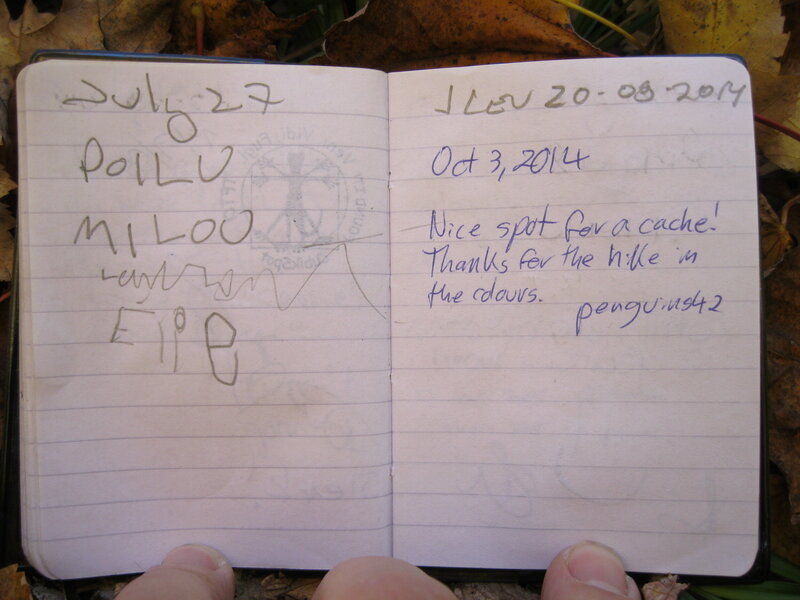 July 27
POILU
MILOU
J LEU 20-09-2014
Oct 3, 2014
Nice spot for a cache!
Thanks for the hike in
the colours.
penguins42